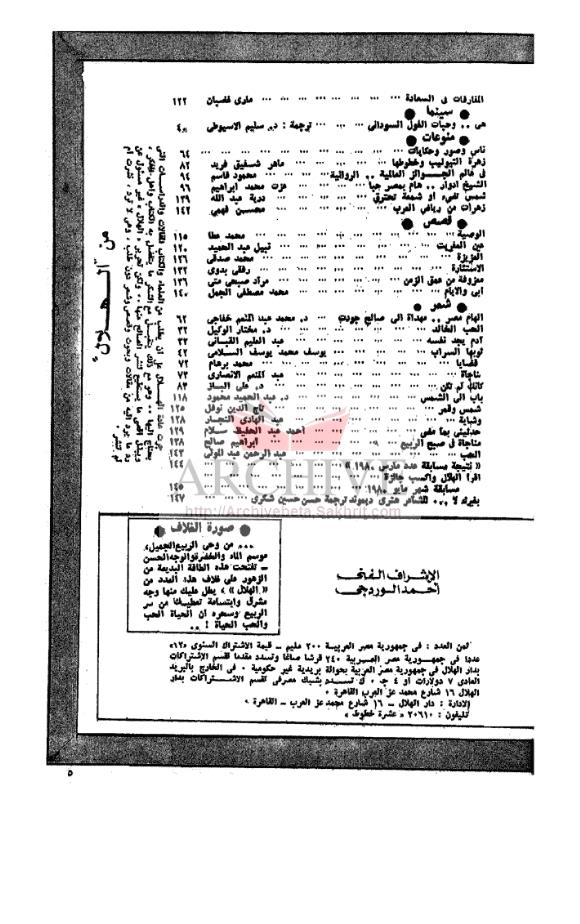 المفارقات فى السعادة ... ... ... ... ... ... مارى غضبان ١٢٢
● سينما ●
هى .. وحبات الفول السودانى ... ... ... ترجمة : د. سليم الاسيوطى ٤٠
● منوعات ●
ناس وصور وحكايات ... ... ... ... ... ... ٦٤
زهرة التيوليب وخطوطها ... ... ... ماهر شفيق فريد ٨٢
فى عالم الجوائز العالية .. الروائية ... ... محمود قاسم ٩٤
الشيخ ادوار .. هام بمصر حبا ... ... عزت محمد ابراهيم ٩٦
شمس تضىء أو شمعة تحترق ... ... درية عبد الله ١٣٩
زهرات من رياض العرب ... ... ... محسن فهمى ١٤٢
● قصص ●
الوصية ... ... ... ... ... ... محمد عطا ١١٥
عين العفريت ... ... ... ... نبيل عبد الحميد ١٢٠
العزيزة ... ... ... ... ... محمد صدقى ١٢٦
الاستثارة ... ... ... ... ... رفقى بدوى ١٣٢
معزوفة من عمق الزمن ... ... ... مراد صبحى متى ١٣٦
أبى والايام ... ... ... محمد مصطفى الجمل ١٤٠
● شعر ●
الهام مصر .. مهداة الى صالح جودت ... د. محمد عبد المنعم خفاجى ٦٢
الحب الخالد ... ... ... ... د. مختار الوكيل ٣٢
آدم يجد نفسه ... ... ... عبد العليم القبانى ٣٣
ثوبها السراب ... ... يوسف محمد يوسف السلامى ٤٢
قضايا ... ... ... ... محمد برهام ٧٢
مناجاة ... ... ... عبد المنعم الانصارى ٧٣
كانك لم تكن ... ... ... د. على الباز ٨٣
باب الى الشمس ... ... ... د. عبد الحميد محمود ١١٨
شمس وقمر ... ... ... تاج الدين نوفل ١٢٥
وشاية ... ... ... ... عبد الهادى النجار ١٢٨
حدثينى بما مضى ... ... أحمد عبد الحفيظ سلام ١٢٩
مناجاة فى صبح الربيع ... ... ابراهيم صالح ١٣٨
الحب ... ... ... عبد الرحمن عبد المولى ١٤٣
« نتيجة مسابقة عدد مارس ١٩٨٠ » ... ... ١٤٤
اقرأ الهلال واكسب جائزة
مسابقة شهر مايو ١٩٨٠ ... ... ١٤٥
بغيرك لا ... للشاعر هنرى ديموند ترجمة حسن حسين شكرى ١٤٧
من الهلال
جرت عادة الهلال على أن يطلب من العلماء والكتاب المقالات والدراسات التى
يحتاج اليها .. وهو مع ذلك يتقبل
ARCHIVE
http://Archivebeta.Sakhrit.com
● صورة الغلاف ●
... من وحى الربيع الجميل،
موسم الماء والخضرة والوجه الحسن
ـ تفتحت هذه الطاقة البديعة من
الزهور على غلاف هذا العدد من
« الهلال » ، يطل عليك منها وجه
مشرق وابتسامة تعطيك من سر
الربيع وسحره ان الحياة الحب
والحب الحياة ! ..
الإشراف الفنى
أحمد الوردجى
ثمن العدد : فى جمهورية مصر العربية ٢٠٠ مليم ـ قيمة الاشتراك السنوى « ١٢
عددا فى جمهورية مصر العربية ٢٤٠ قرشا صاغا وتسدد مقدما لقسم الاشتراكات
بدار الهلال فى جمهورية مصر العربية بحوالة بريدية غير حكومية ٠ فى الخارج بالبريد
العادى ٧ دولارات أو ٤ ج.ك تسدد بشيك مصرفى لقسم الاشتراكات بدار
الهلال ١٦ شارع محمد عز العرب القاهرة ٠
الإدارة : دار الهلال ـ ١٦ شارع محمد عز العرب ـ القاهرة ٠
تليفون : ٢٠٦١٠ « عشرة خطوط »
٥